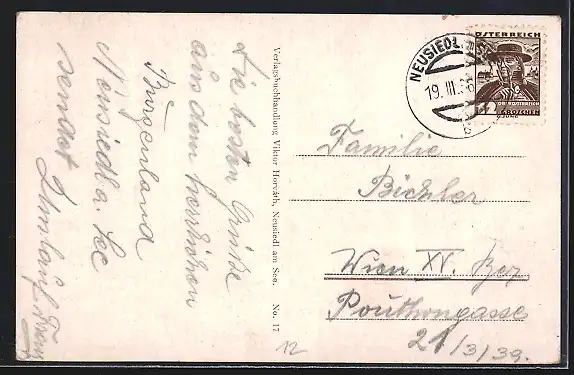 Die besten Grüße
aus dem herrlichen
Burgenland
Neusiedl a. See
sendet
Verlagsbuchhandlung Viktor Horváth, Neusiedl am See. No. 17
NEUSIEDL
19. III. 36
b
ÖSTERREICH
12
GROSCHEN
Familie
Bichler
Wien XV. Bez
Pouthongasse
21/3/39.
12